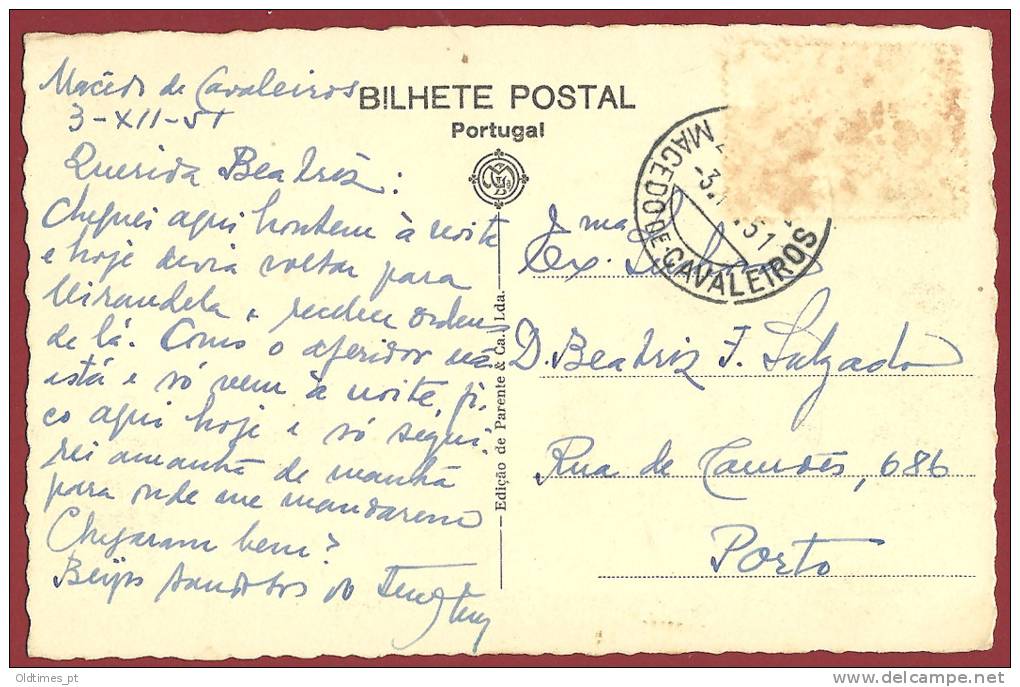 Macêdo de Cavaleiros
3-XII-51
Querida Beatriz:
Cheguei aqui hontem à noite
e hoje devia voltar para
Mirandela e receber ordens
de lá. Como o aferidor não
está e só vem à noite, fi-
co aqui hoje e só segui-
rei amanhã de manhã
para onde me mandarem
Chegaram bem?
Beijos saudosos do
BILHETE POSTAL
Portugal
Edição de Parente & Ca. Lda.
MACEDO DE CAVALEIROS
-3. 51
Exma Senhora
D. Beatriz F. Salgado
Rua de Camões, 686
Porto
Oldtimes_pt
delcampe.net